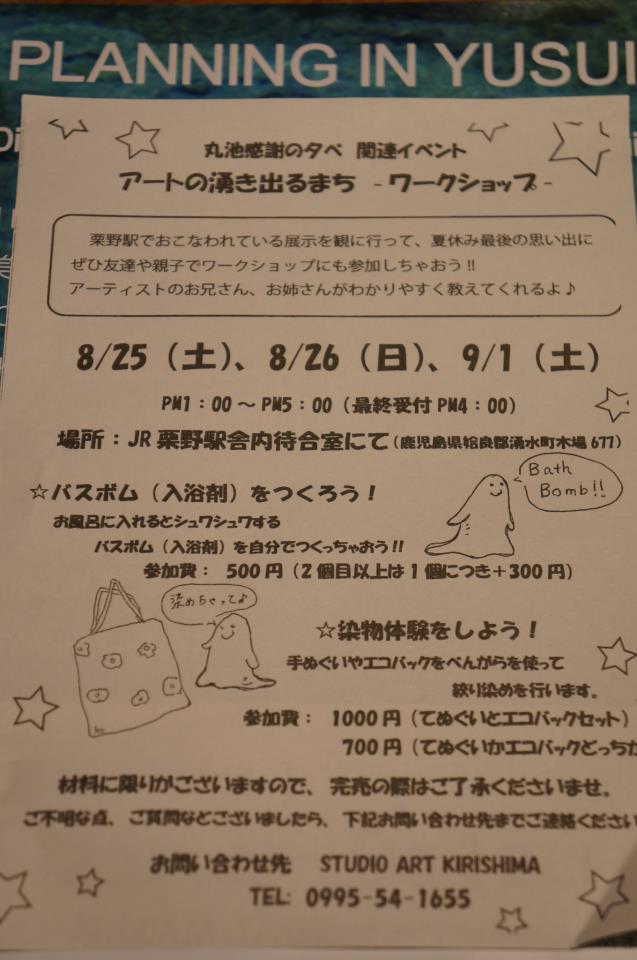 PLANNING IN YUSUI
丸池感謝の夕べ 関連イベント
アートの湧き出るまち - ワークショップ -
栗野駅でおこなわれている展示を観に行って、夏休み最後の思い出に
ぜひ友達や親子でワークショップにも参加しちゃおう!!
アーティストのお兄さん、お姉さんがわかりやすく教えてくれるよ♪
8/25（土）、8/26（日）、9/1（土）
PM1：00～PM5：00（最終受付PM4：00）
場所：JR 栗野駅舎内待合室にて（鹿児島県姶良郡湧水町木場 677）
☆バスボム（入浴剤）をつくろう！
Bath
Bomb!!
お風呂に入れるとシュワシュワする
バスボム（入浴剤）を自分でつくっちゃおう!!
参加費： 500円（2個目以上は1個につき＋300円）
染めちゃって♪
☆染物体験をしよう！
手ぬぐいやエコバックをべんがらを使って
絞り染めを行います。
参加費： 1000円（てぬぐいとエコバックセット）
700円（てぬぐいかエコバックどっちか
材料に限りがございますので、完売の際はご了承くださいませ。
ご不明な点、ご質問などございましたら、下記お問い合わせ先までご連絡ください
お問い合わせ先 STUDIO ART KIRISHIMA
TEL: 0995-54-1655